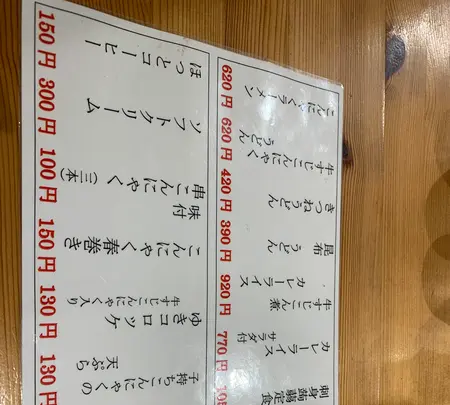 刺身蒟蒻定食
カレーライス
サラダ付
770円
牛すじこん煮
カレーライス
920円
昆布うどん
390円
きつねうどん
420円
牛すじこんにゃく
うどん
620円
こんにゃくラーメン
620円
子持ちこんにゃくの
天ぷら
130円
ゆきコロッケ
牛すじこんにゃく入り
130円
こんにゃく春巻き
150円
味付
串こんにゃく(三本)
100円
ソフトクリーム
300円
ほっとコーヒー
150円